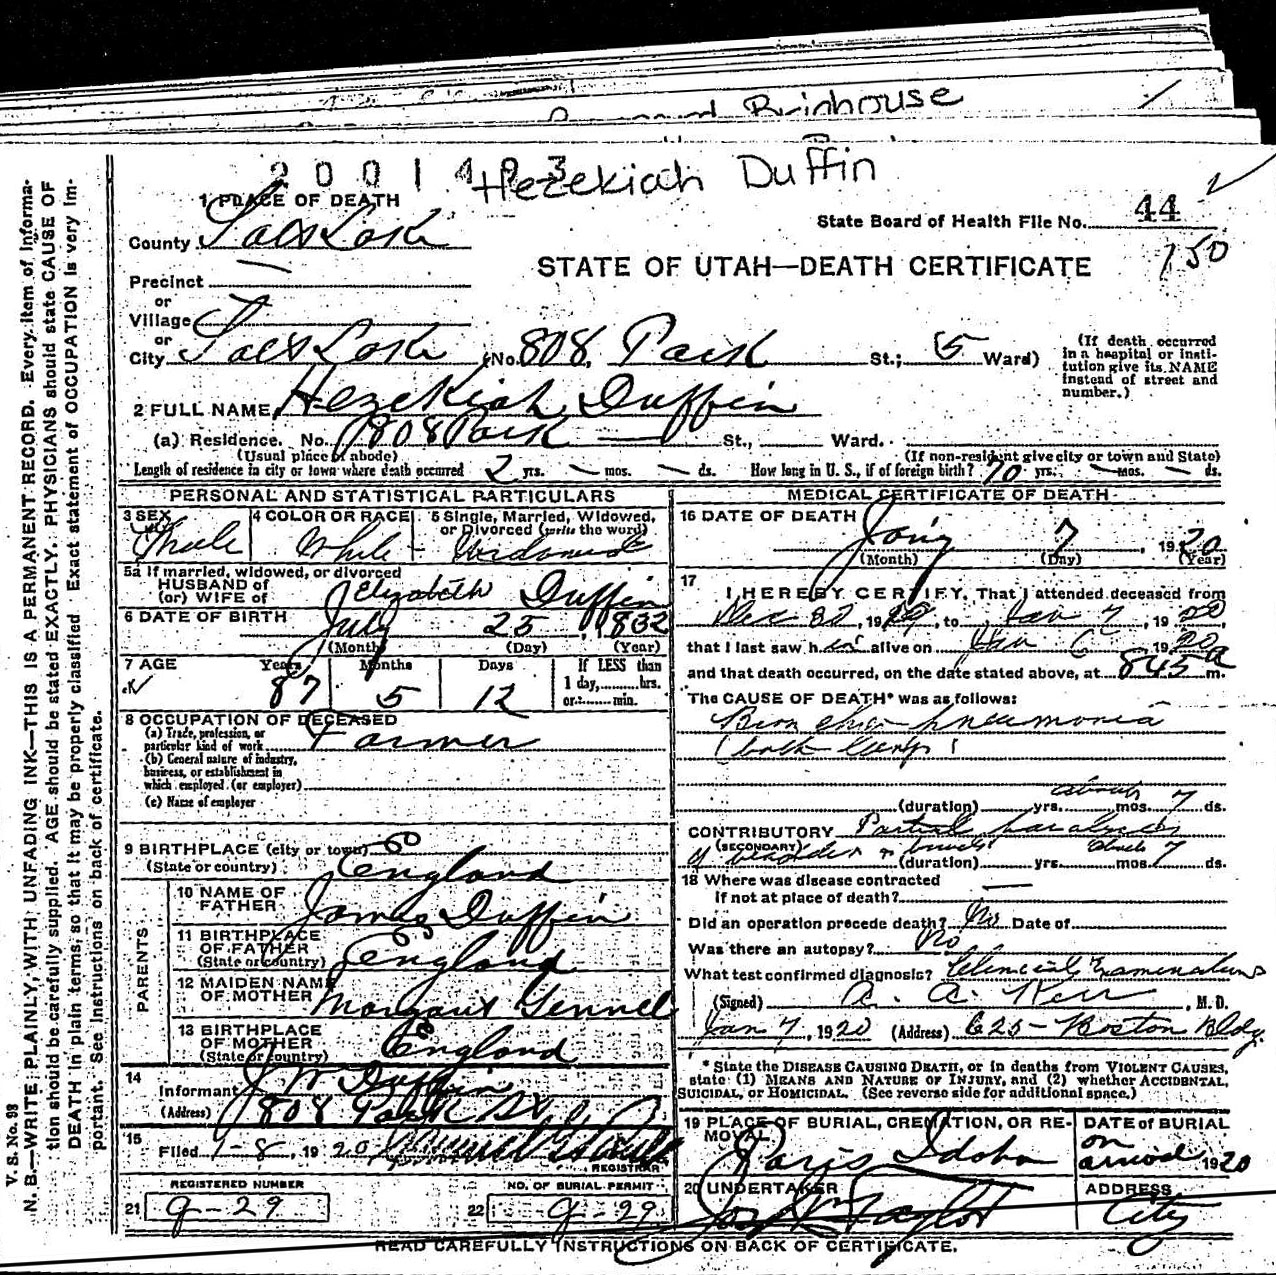 Brinhouse
2001403
Hezekiah Duffin
1 PLACE OF DEATH
State Board of Health File No. 44
County Salt Lake
STATE OF UTAH—DEATH CERTIFICATE
150
Precinct
or
Village
or
City Salt Lake (No. 808 Park St.; 5 Ward)
(If death occurred in a hospital or institution give its NAME instead of street and number.)
2 FULL NAME Hezekiah Duffin
(a) Residence. No. 808 Park St., Ward.
(Usual place of abode) (If non-resident give city or town and State)
Length of residence in city or town where death occurred 2 yrs. — mos. — ds. How long in U. S., if of foreign birth? 70 yrs. — mos. — ds.
PERSONAL AND STATISTICAL PARTICULARS
3 SEX 4 COLOR OR RACE 5 Single, Married, Widowed, or Divorced (write the word)
Male White Widowed
5a If married, widowed, or divorced
HUSBAND of
(or) WIFE of Elizabeth Duffin
6 DATE OF BIRTH July 25, 1832
(Month) (Day) (Year)
7 AGE Years Months Days If LESS than
87 5 12 1 day, hrs.
or min.
8 OCCUPATION OF DECEASED
(a) Trade, profession, or
particular kind of work Farmer
(b) General nature of industry,
business, or establishment in
which employed (or employer)
(c) Name of employer
9 BIRTHPLACE (city or town)
(State or country) England
PARENTS
10 NAME OF
FATHER James Duffin
11 BIRTHPLACE
OF FATHER
(State or country) England
12 MAIDEN NAME
OF MOTHER Margaret
13 BIRTHPLACE
OF MOTHER
(State or country) England
14
Informant J W Duffin
(Address) 808 Park St
15
Filed 1-8, 1920
REGISTRAR
REGISTERED NUMBER NO. OF BURIAL PERMIT
21 9-29 22 9-29
MEDICAL CERTIFICATE OF DEATH
16 DATE OF DEATH
Jany 7, 1920
(Month) (Day) (Year)
17
I HEREBY CERTIFY, That I attended deceased from
Dec 1919, to Jan 7, 1920
that I last saw him alive on Jan 6 1920
and that death occurred, on the date stated above, at 845 a m.
The CAUSE OF DEATH* was as follows:
Broncho pneumonia
(both lungs)
about
(duration) yrs. mos. 7 ds.
CONTRIBUTORY Partial paralysis
(SECONDARY)
of bladder & bowels (duration) yrs. about mos. 7 ds.
18 Where was disease contracted
if not at place of death? —
Did an operation precede death? No Date of
Was there an autopsy? No
What test confirmed diagnosis? Clinical Examinations
(Signed) A. A. Kerr, M. D.
Jan 7, 1920 (Address) 625 - Boston Bldg.
* State the DISEASE CAUSING DEATH, or in deaths from VIOLENT CAUSES,
state (1) MEANS AND NATURE OF INJURY, and (2) whether ACCIDENTAL,
SUICIDAL, or HOMICIDAL. (See reverse side for additional space.)
19 PLACE OF BURIAL, CREMATION, OR RE-
MOVAL DATE of BURIAL
Paris Idaho on arrival 1920
20 UNDERTAKER ADDRESS
Jos Wm Taylor City
READ CAREFULLY INSTRUCTIONS ON BACK OF CERTIFICATE.
V. S. No. 93
N. B.—WRITE PLAINLY, WITH UNFADING INK—THIS IS A PERMANENT RECORD. Every item of informa-
tion should be carefully supplied. AGE should be stated EXACTLY. PHYSICIANS should state CAUSE OF
DEATH in plain terms, so that it may be properly classified. Exact statement of OCCUPATION is very im-
portant. See instructions on back of certificate.